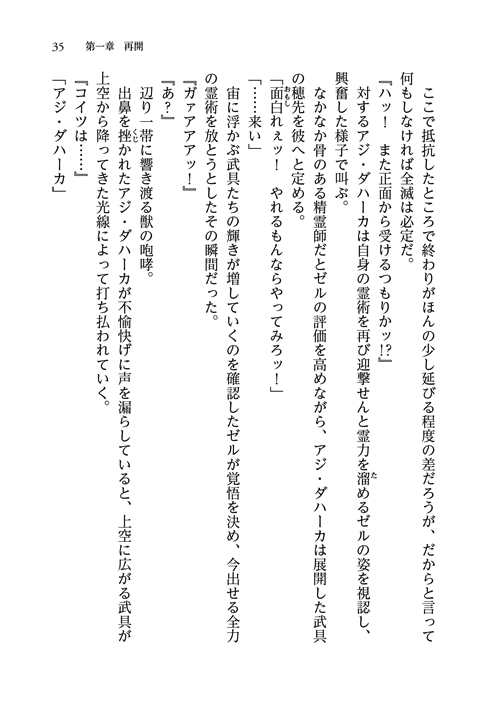 35　第一章　再開
ここで抵抗したところで終わりがほんの少し延びる程度の差だろうが、だからと言って
何もしなければ全滅は必定だ。
『ハッ！　また正面から受けるつもりかッ!?』
対するアジ・ダハーカは自身の霊術を再び迎撃せんと霊力を溜めるゼルの姿を視認し、
興奮した様子で叫ぶ。
なかなか骨のある精霊師だとゼルの評価を高めながら、アジ・ダハーカは展開した武具
の穂先を彼へと定める。
「面白れぇッ！　やれるもんならやってみろッ！」
「……来い」
宙に浮かぶ武具たちの輝きが増していくのを確認したゼルが覚悟を決め、今出せる全力
の霊術を放とうとしたその瞬間だった。
『ガァアアアッ！』
『あ？』
辺り一帯に響き渡る獣の咆哮。
出鼻を挫かれたアジ・ダハーカが不愉快げに声を漏らしていると、上空に広がる武具が
上空から降ってきた光線によって打ち払われていく。
『コイツは……』
「アジ・ダハーカ」